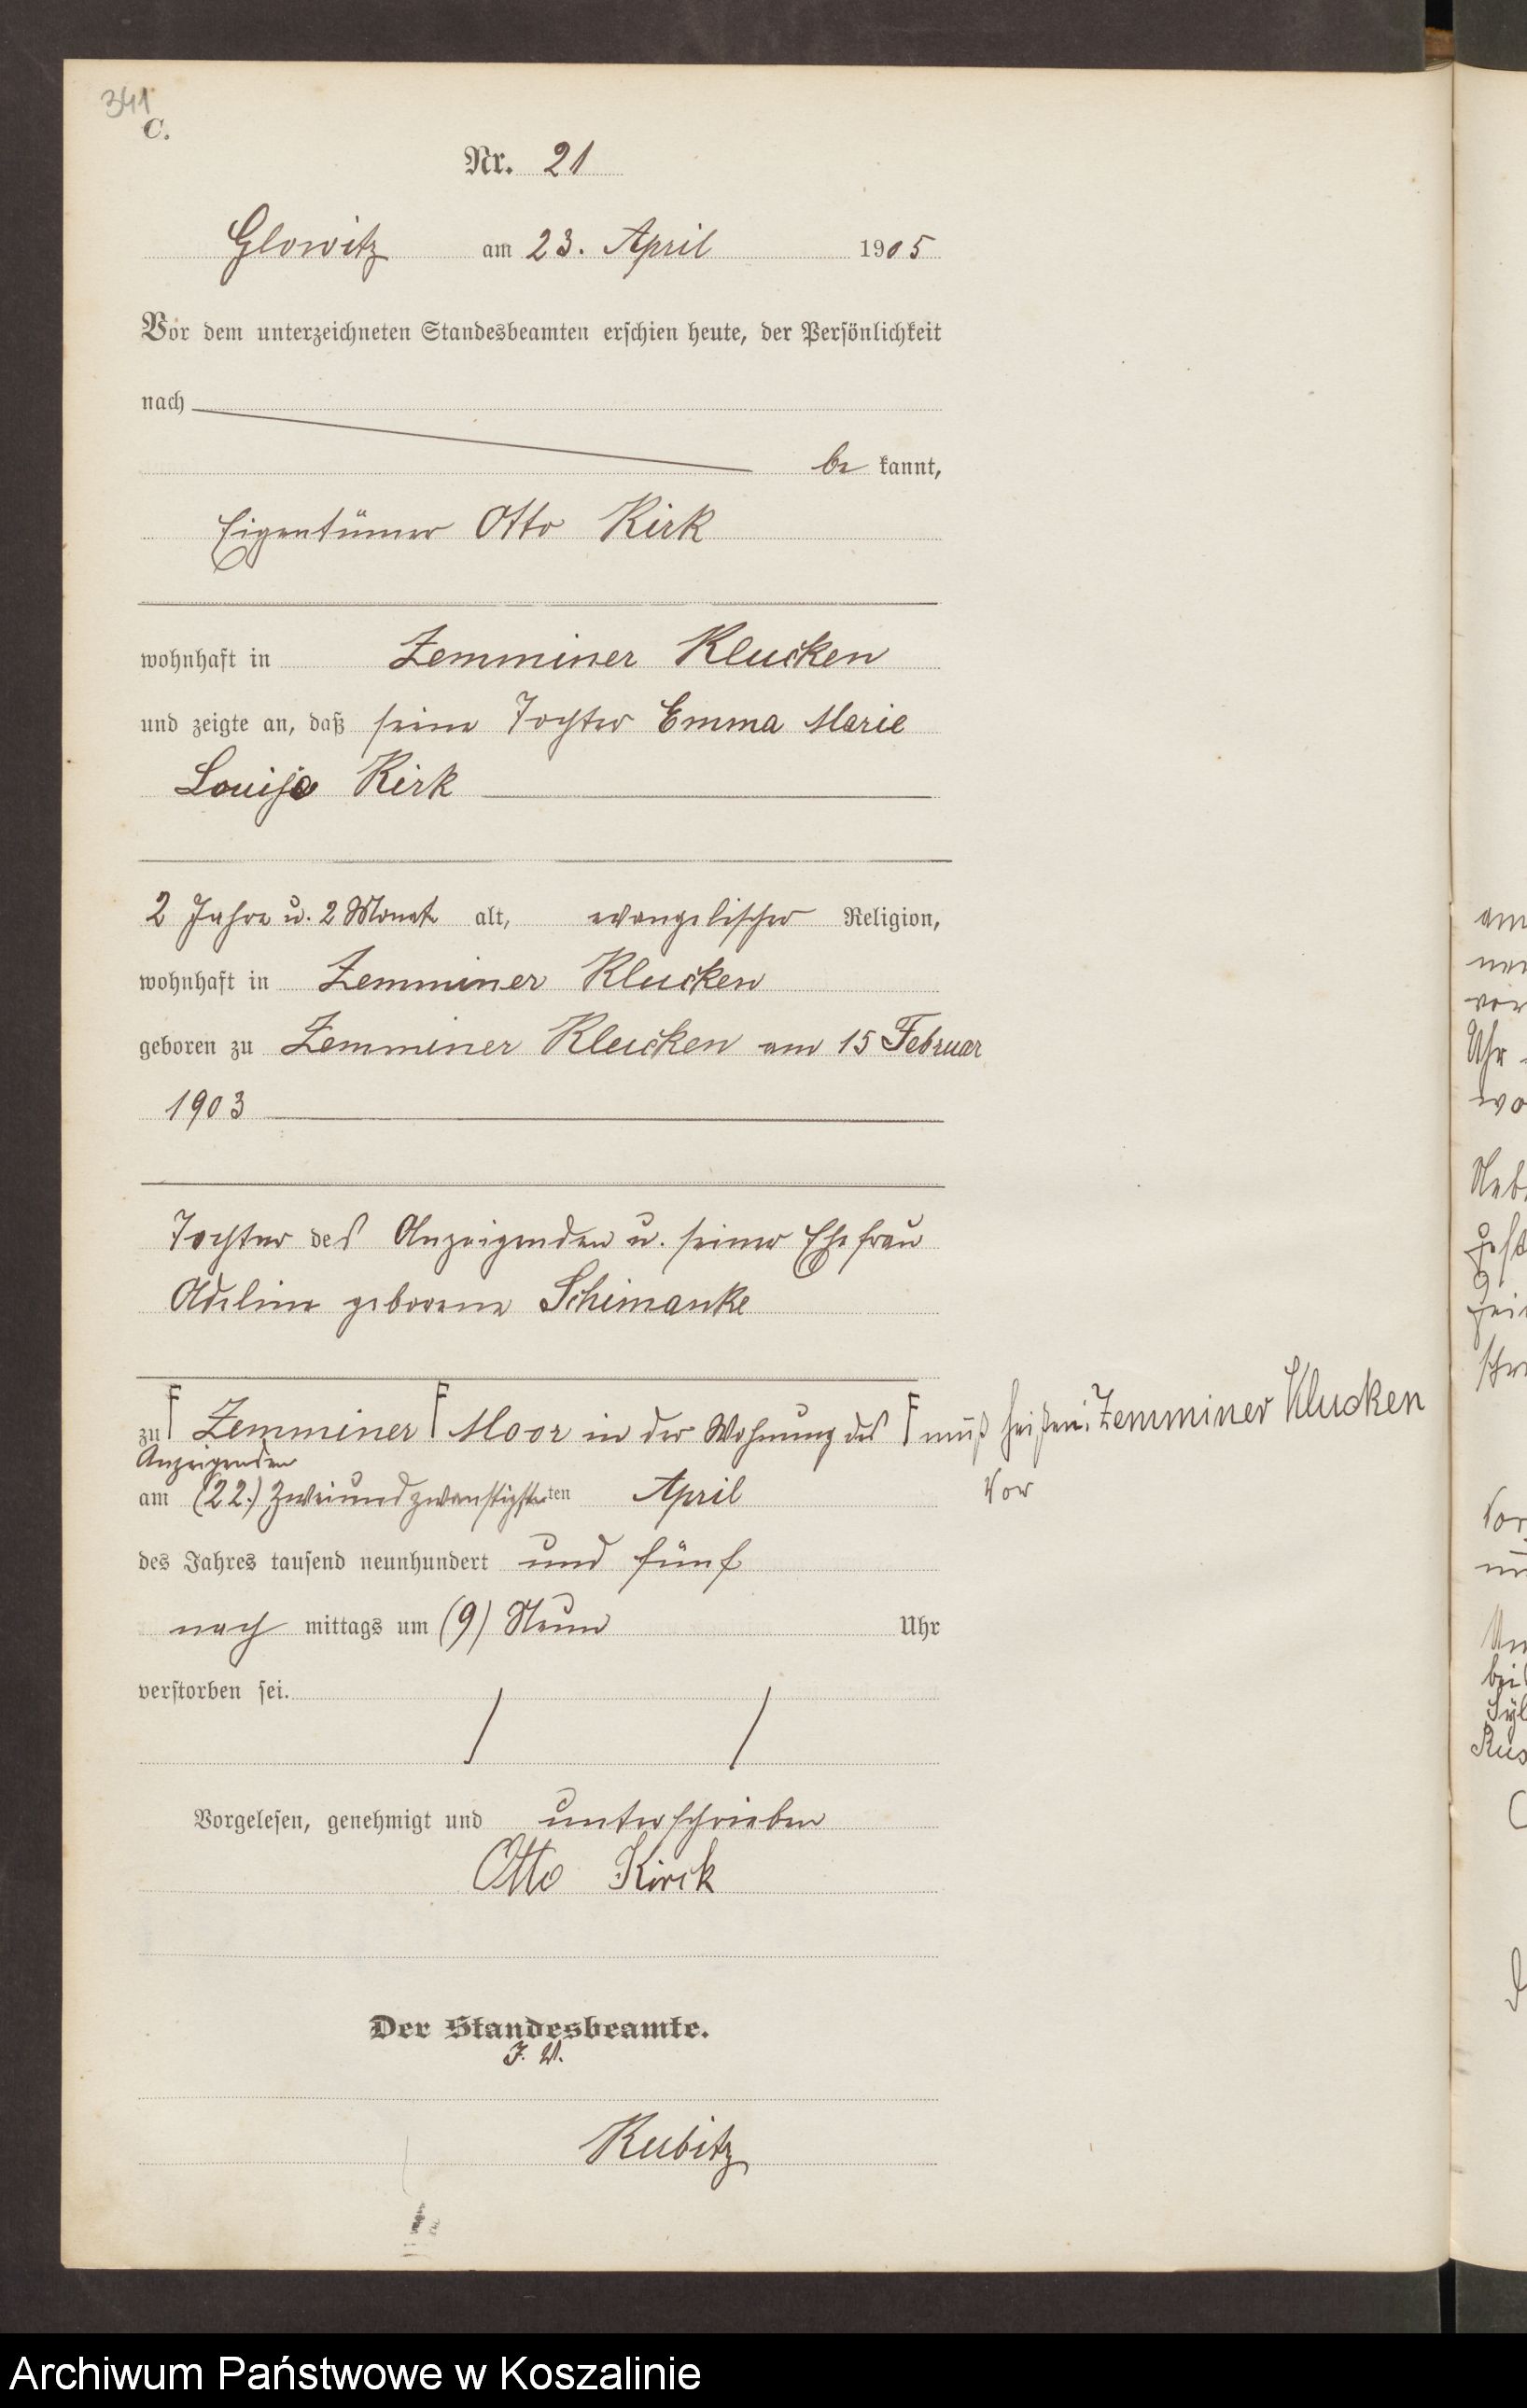 341
C.
Nr. 21
Glowitz am 23. April 1905
Vor dem unterzeichneten Standesbeamten erschien heute, der Persönlichkeit
nach
be kannt,
Eigentümer Otto Kirk
wohnhaft in Zemminer Klucken
und zeigte an, daß seine Tochter Emma Marie
Louise Kirk
2 Jahre u. 2 Monate alt, evangelischer Religion,
wohnhaft in Zemminer Klucken
geboren zu Zemminer Klucken am 15 Februar
1903
Tochter des Anzeigenden u. seiner Ehefrau
Adeline geborene Schimanke
zu Zemminer Moor in der Wohnung des muß heißen: Zemminer Klucken
Anzeigenden
am (22.) Zweiundzwanstigsten ten April
des Jahres tausend neunhundert und fünf
nach mittags um (9) Neun Uhr
verstorben sei.
Vorgelesen, genehmigt und unterschrieben
Otto Kirck
Der Standesbeamte.
J. V.
Kubitz
am
Uhr
Archiwum Państwowe w Koszalinie